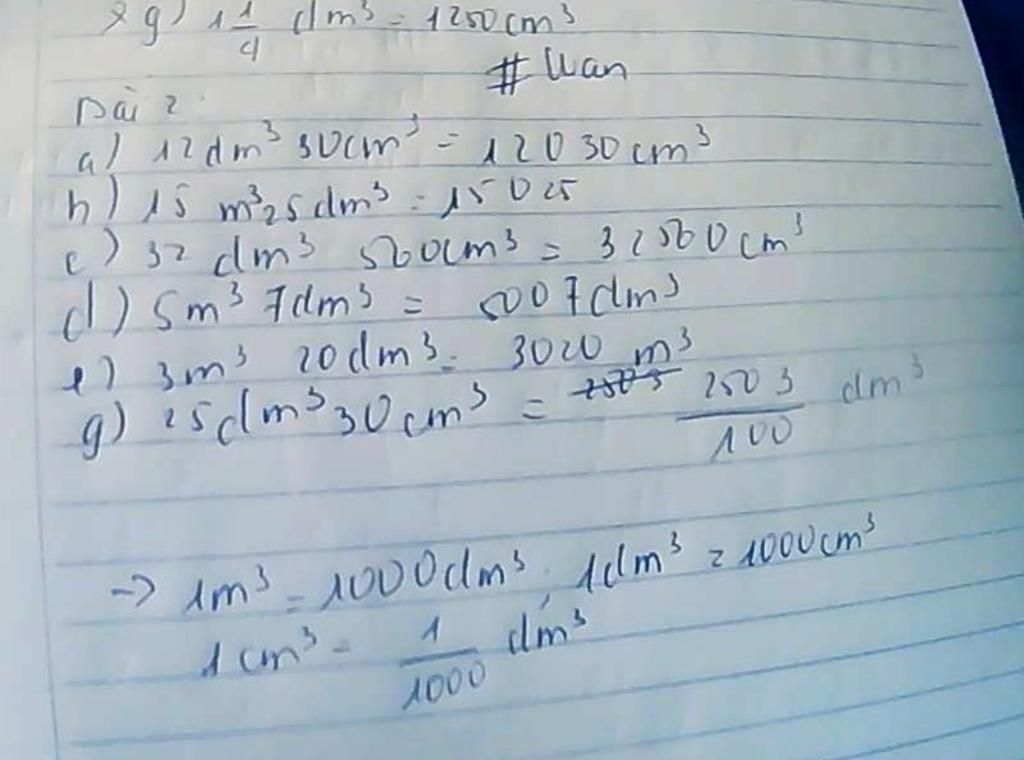 g) 1 1/4 dm³ = 1250cm³
# Wan
Bài 2:
a) 12dm³ 30cm³ = 12030cm³
b) 15 m³25dm³ = 15025
c) 32 dm³ 560cm³ = 32560cm³
d) 5m³ 7dm³ = 5007dm³
e) 3m³ 20dm³ = 3020 m³
g) 25dm³30cm³ = 2503 2503/100 dm³
-> 1m³ = 1000dm³, 1dm³ = 1000cm³
1cm³ = 1/1000 dm³